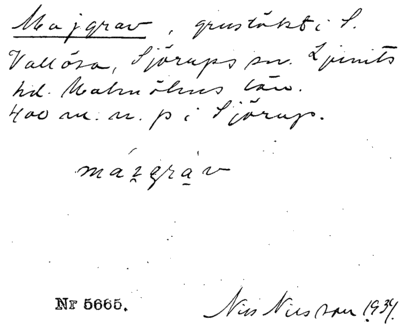 Majgrav, grustäkt i S.
Vallösa, Sjörups sn. Ljunits
hd. Malmöhus län.
400 m. n. p i Sjörup.
mázgràv
Nr 5665.
Nils Nilsson 1934.